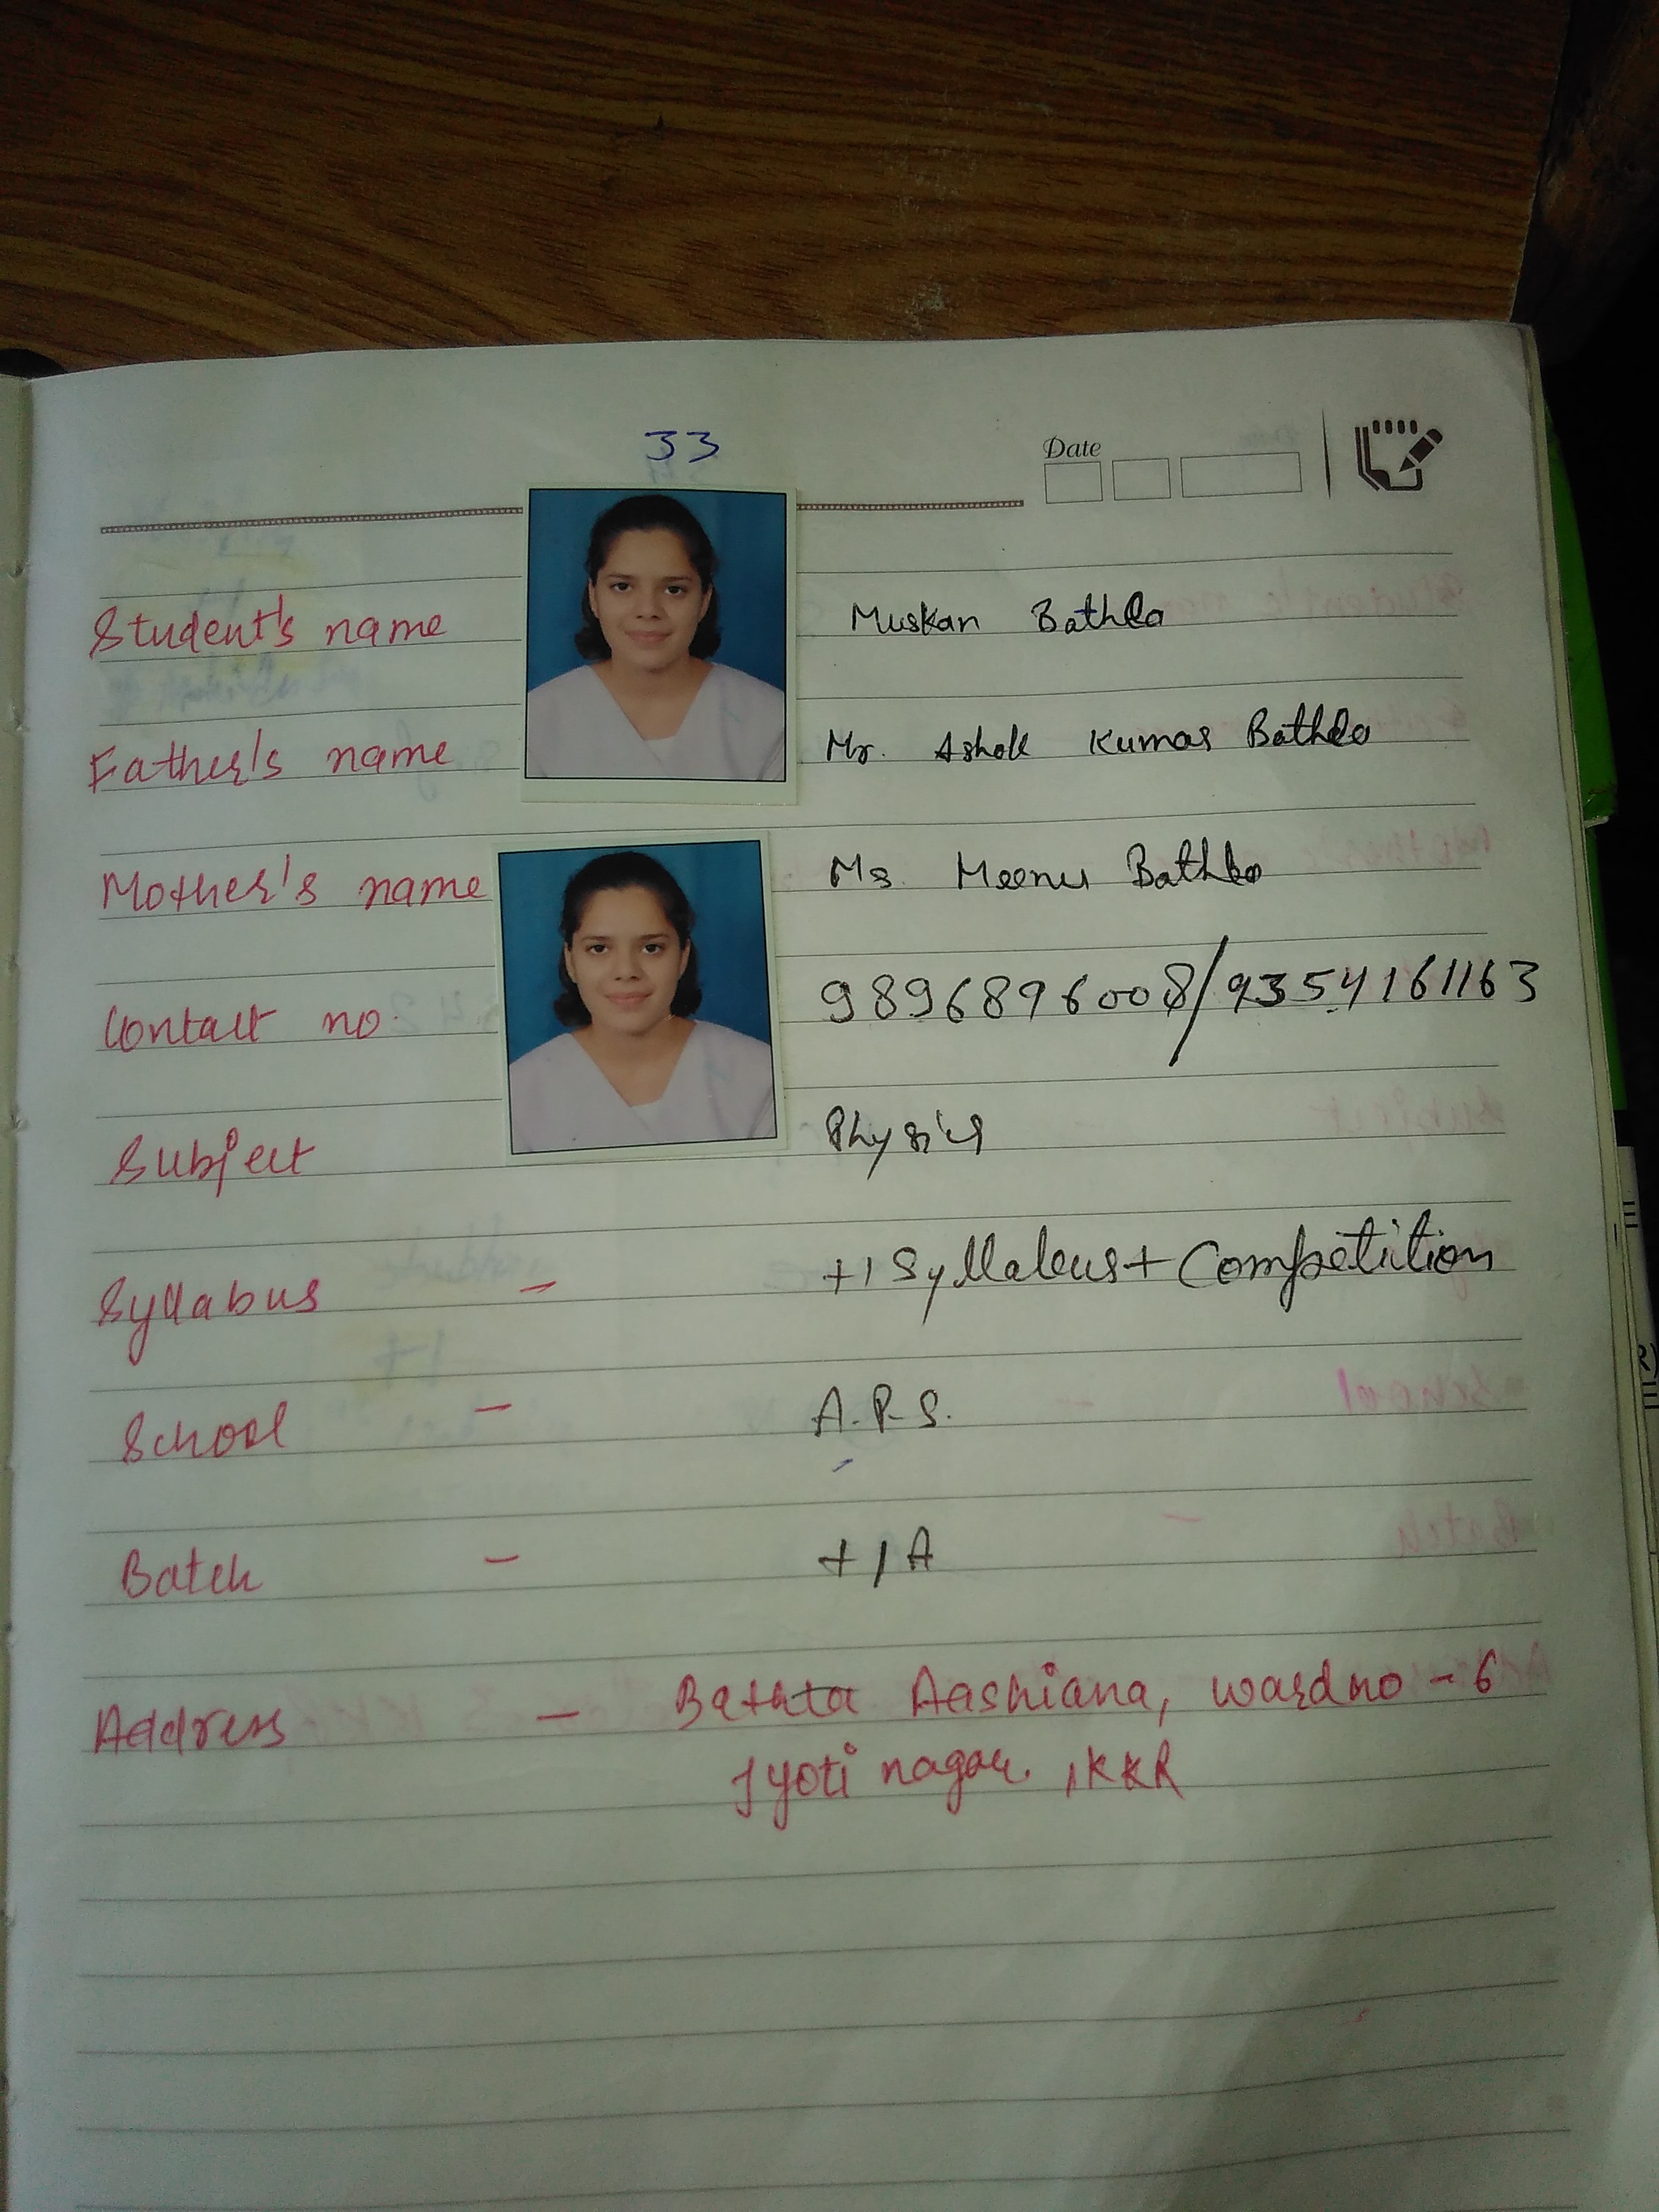 33
Date
Student's name Muskan Bathla
Father's name Mr. Ashok Kumar Bathla
Mother's name Ms. Meenu Bathla
Contact no. 9896896008/9354161163
Subject Physics
Syllabus - +1 Syllabus + Competition
School - A.P.S.
Batch - +1A
Address - Bathla Aashiana, ward no - 6
Jyoti nagar, KKR